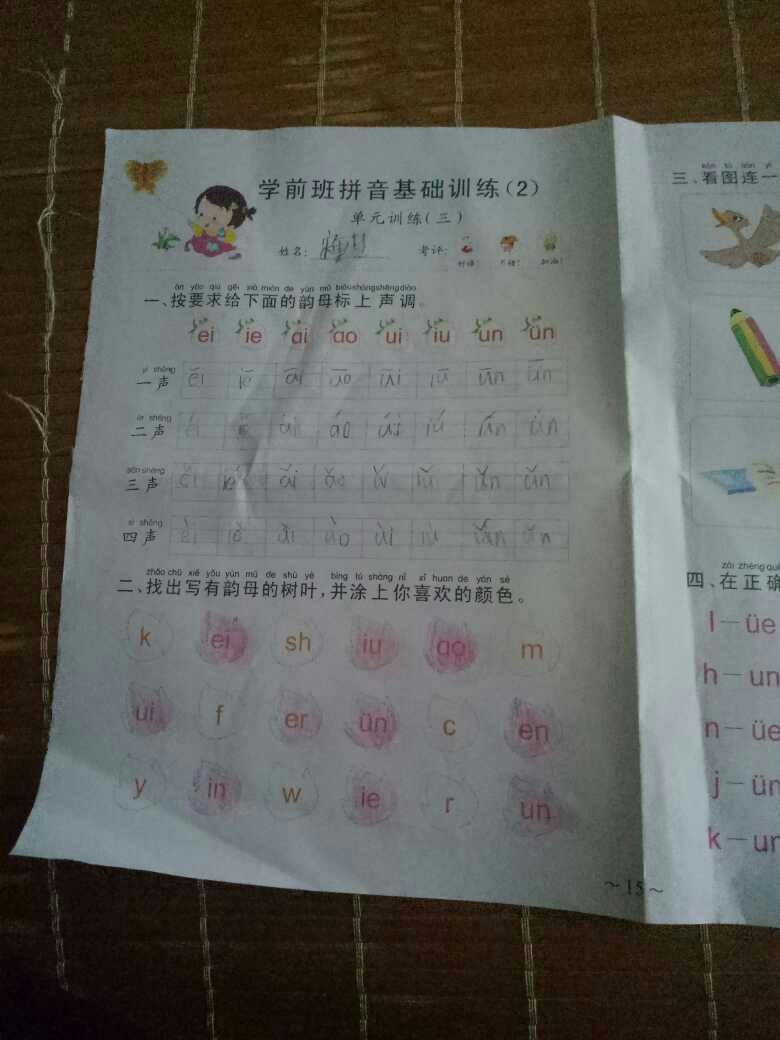 学前班拼音基础训练(2)
单元训练(三)
姓名: 考评: 好棒! 不错! 加油!
àn yāo qiú gěi xià miàn de yùn mǔ biāo shàng shēng diào
一、按要求给下面的韵母标上声调。
ei ie ai ao ui iu un ün
yī shēng
一声 ēi iē āi āo ūi iū ūn ǖn
èr shēng
二声 ái áo úi iú ún ǘn
sān shēng
三声 ěi ǎi ǎo iǔ ǔn ǚn
sì shēng
四声 èi iè ài ào ùi iù
zhǎo chū xiě yǒu yùn mǔ de shù yè bìng tú shàng nǐ xǐ huan de yán sè
二、找出写有韵母的树叶,并涂上你喜欢的颜色。
k ei sh iu ao m
ui f er ün c en
y in w ie r un
~15~
kàn tú lián yī
三、看图连一
zài zhèng què
四、在正确
l—üe
h—un
n—üe
j—ün
k—un